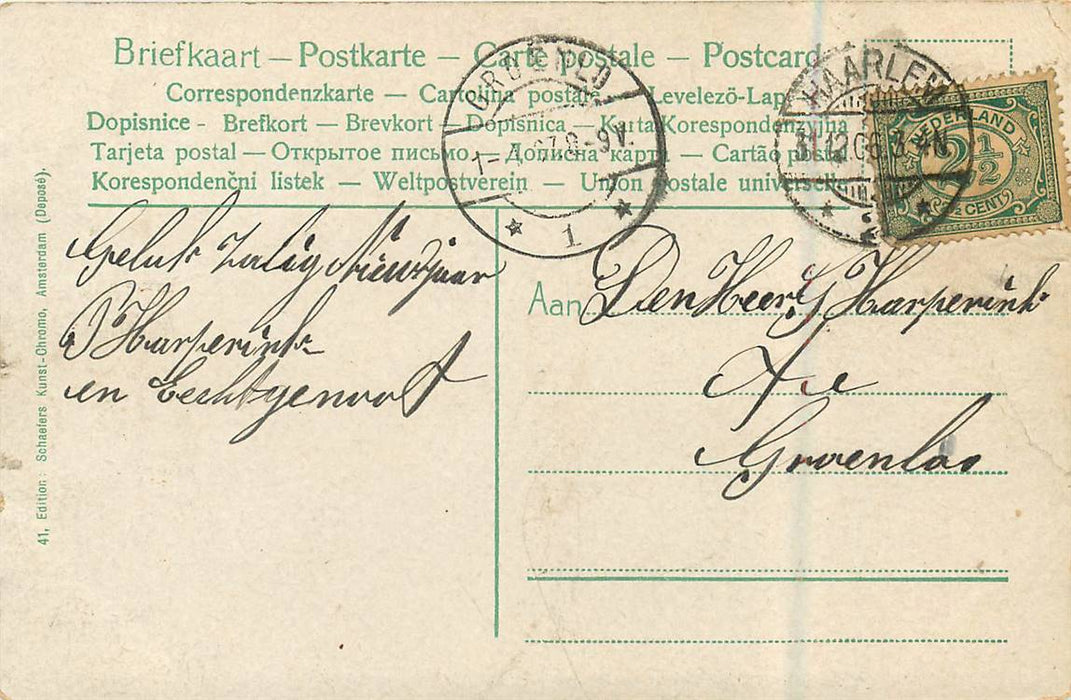 Briefkaart — Postkarte — Carte postale — Postcard
Correspondenzkarte — Cartolina postale Levelezö-Lap
Dopisnice - Brefkort — Brevkort — Dopisnica — Karta Korespondencyjna
Tarjeta postal — Открытое письмо — Дописна карта — Cartão postal
Korespondenčni listek — Weltpostverein — Union postale universelle
GROENLO
1- 07 8-9V.
1
HAARLEM
31.12.06. 3-4N
NEDERLAND
2½
CENT
Geluk Zalig Nieuwjaar
Harperink
en Echtgenoot
Aan Den Heer G Harperink
Te
Groenloo
41, Edition: Schaefers Kunst-Chromo, Amsterdam (Deposé).